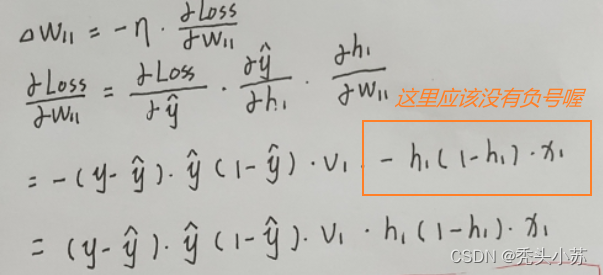 ΔW₁₁ = -η · ∂Loss/∂W₁₁
∂Loss/∂W₁₁ = ∂Loss/∂ŷ · ∂ŷ/∂h₁ · ∂h₁/∂W₁₁
这里应该没有负号喔
= -(y-ŷ) · ŷ(1-ŷ) · V₁ - h₁(1-h₁) · x₁
= (y-ŷ) · ŷ(1-ŷ) · V₁ · h₁(1-h₁) · x₁
CSDN @秃头小苏